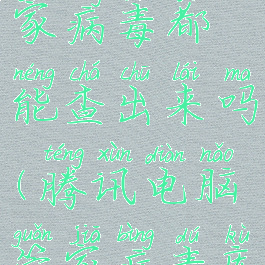 家病毒都
néng chá chū lái ma
能查出来吗
téng xùn diàn nǎo
(腾讯电脑
guǎn jiā bìng dú kù
管家病毒库